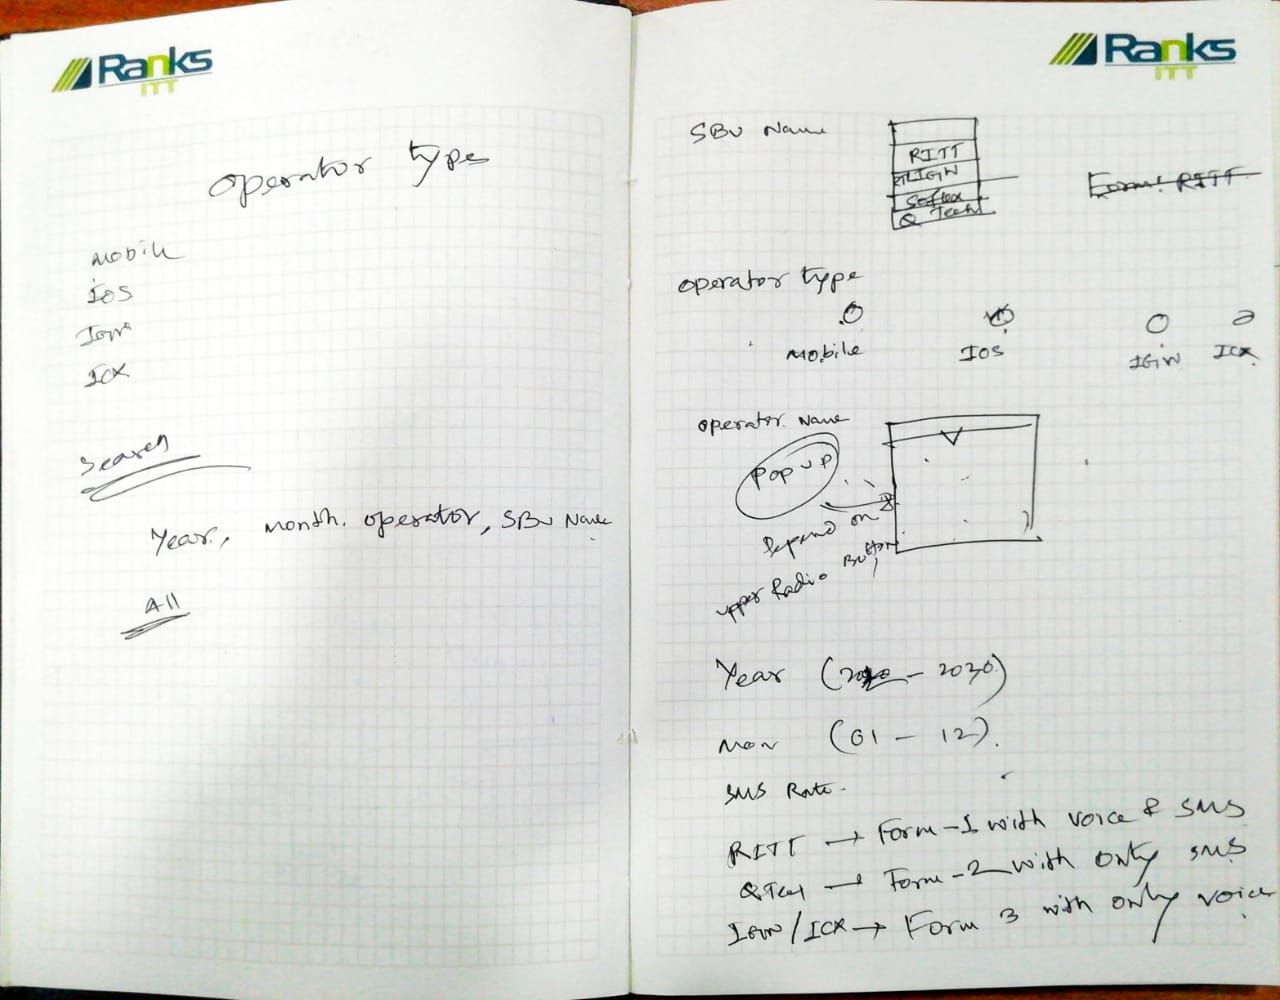 Ranks
ITT
Operator type
Mobile
IOS
IGW
ICX
Search
Year, month. operator, SBU Name
All
Ranks
ITT
SBU Name
RITT
IGW
Softex
Q Tech
Form: RITT
operator type
Mobile
IOS
IGW
ICX
operator Name
Pop up
Depend on
upper Radio Button
Year ( - 2030)
Mon (01 - 12).
SMS Rate.
RITT → Form-1 with voice & SMS
QTech → Form-2 with only SMS
IGW/ICX → Form 3 with only voice